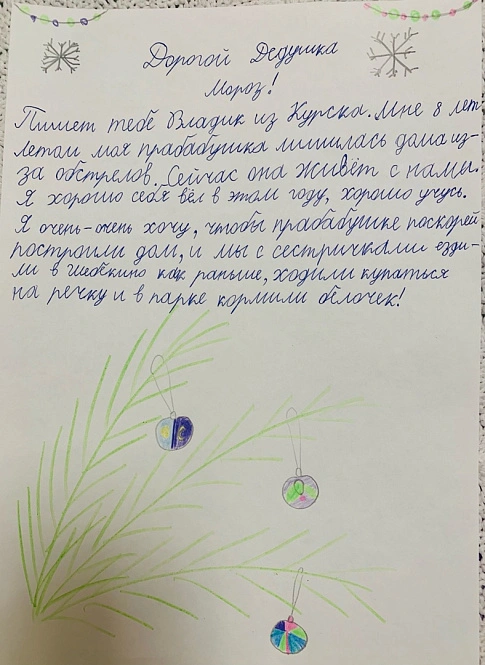 Дорогой Дедушка
Мороз!
Пишет тебе Владик из Курска. Мне 8 лет.
Летом моя прабабушка лишилась дома из-
за обстрелов. Сейчас она живёт с нами.
Я хорошо себя вёл в этом году, хорошо учусь.
Я очень-очень хочу, чтобы прабабушке поскорей
построили дом, и мы с сестричками езди-
ли в Шебекино как раньше, ходили купаться
на речку и в парке кормили белочек!